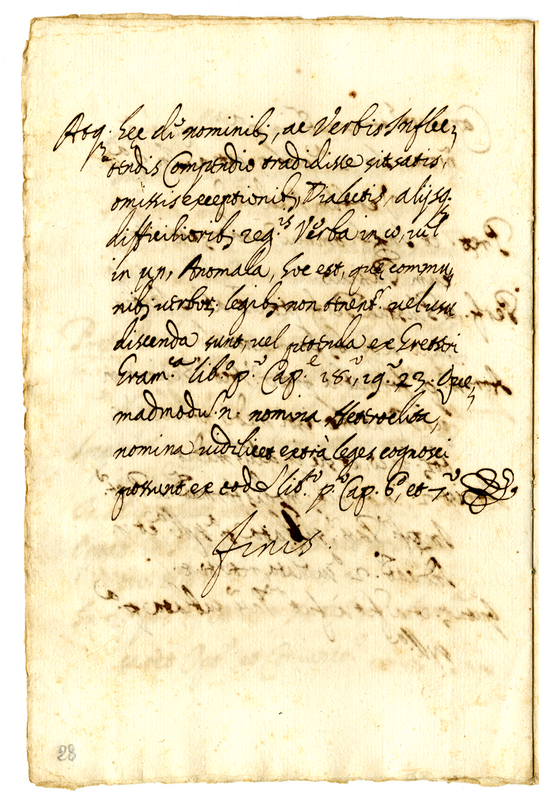 Atq. hec de nominib9, ac Verbis Inflec=
tendis Compendio tradidisse sit satis,
omissis exceptionib9, Dialectis, alijsq.
difficilioribus reg.is Verba in ω, vel
in μι, Anomala, hoc est, quę commu=
nib9 verbor. legib9 non tenent.r vel usu
discenda sunt, vel petenda ex Gretseri
Gram.ca lib.o p.o Cap.e 18.o, 19.o 23. Que=
madmodu. n. nomina Heteroclita,
nomina videlicet extrà leges cognosci
possunt ex eod. lib.o p.o Cap. 6.o, et 7.o
Finis.
28